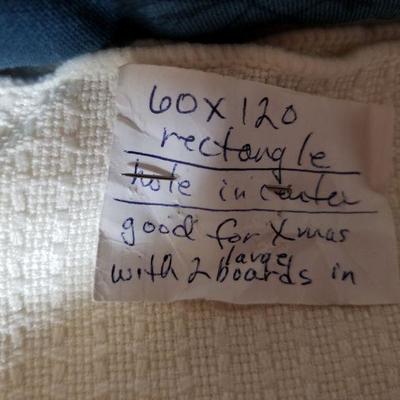 60 x 120
rectangle
hole in center
good for Xmas
large
with 2 boards in